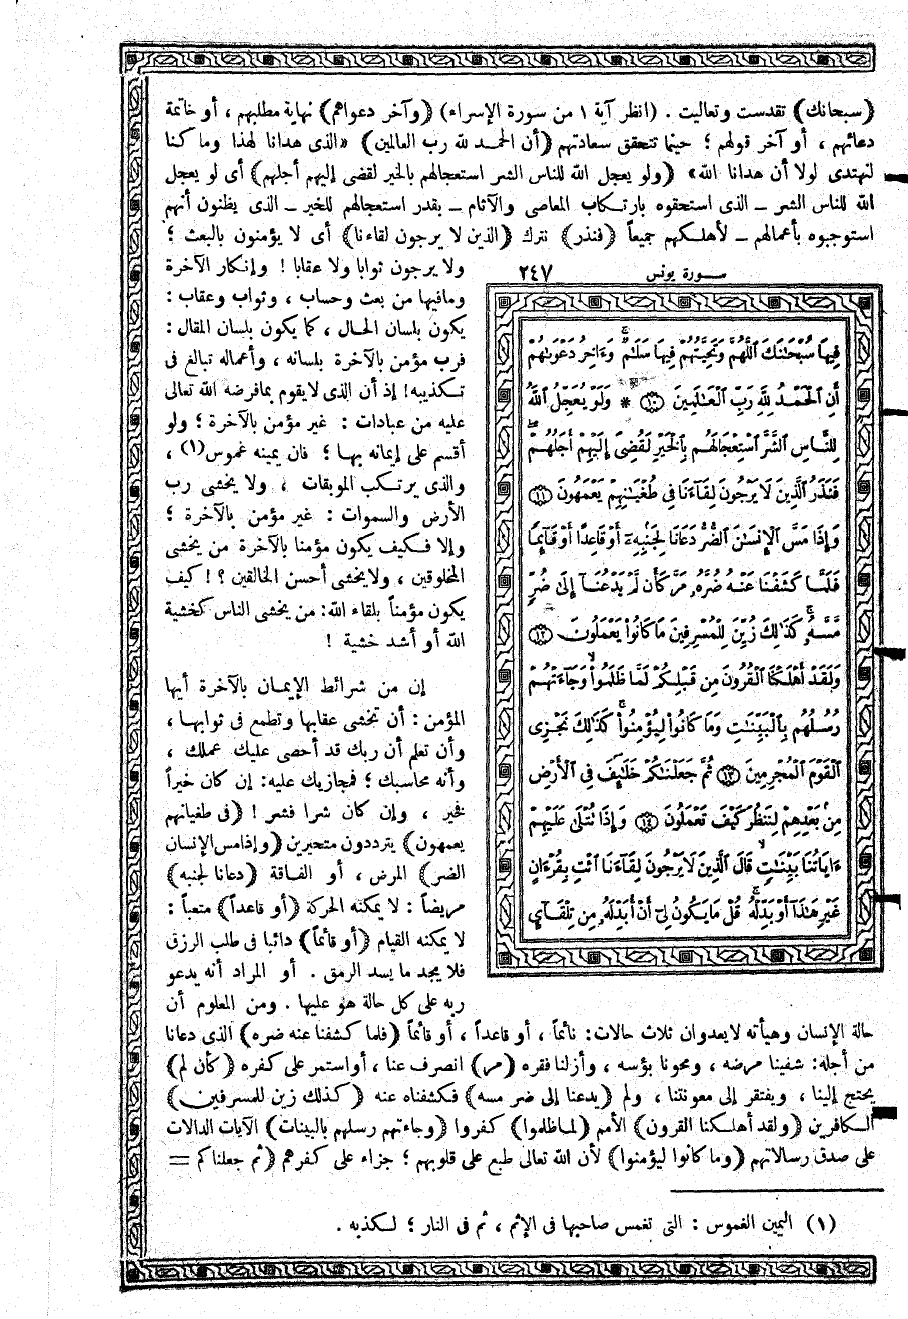 (سبحانك) تقدست وتعاليت . (انظر آية ١ من سورة الإسراء) (وآخر دعواهم) نهاية مطلبهم ، أو خاتمة
دعائهم ، أو آخر قولهم ؛ حينما تتحقق سعادتهم (أن الحمد لله رب العالمين) «الذى هدانا لهذا وما كنا
لنهتدى لولا أن هدانا الله» (ولو يعجل الله للناس الشر استعجالهم بالخير لقضى إليهم أجلهم) أى لو يعجل
الله للناس الشر ــ الذى استحقوه بارتكاب المعاصى والآثام ــ بقدر استعجالهم للخير ــ الذى يظنون أنهم
استوجبوه بأعمالهم ــ لأهلكهم جميعاً (فنذر) نترك (الذين لا يرجون لقاءنا) أى لا يؤمنون بالبعث ؛
ولا يرجون ثوابا ولا عقابا ! وإنكار الآخرة
ومافيها من بعث وحساب ، وثواب وعقاب :
يكون بلسان الحال ، كما يكون بلسان المقال :
فرب مؤمن بالآخرة بلسانه ، وأعماله تبالغ فى
تكذيبه! إذ أن الذى لايقوم بمافرضه الله تعالى
عليه من عبادات : غير مؤمن بالآخرة ؛ ولو
أقسم على إيمانه بها ؛ فان يمينه غموس(١) ،
والذى يرتكب الموبقات ، ولا يخشى رب
الأرض والسموات : غير مؤمن بالآخرة ؛
وإلا فكيف يكون مؤمنا بالآخرة من يخشى
المخلوقين ، ولايخشى أحسن الخالقين ؟! كيف
يكون مؤمناً بلقاء الله: من يخشى الناس كخشية
الله أو أشد خشية !
إن من شرائط الإيمان بالآخرة أيها
المؤمن : أن تخشى عقابها وتطمع فى ثوابها ،
وأن تعلم أن ربك قد أحصى عليك عملك ،
وأنه محاسبك ؛ فمجازيك عليه: إن كان خيراً
فخير ، وإن كان شرا فشر ! (فى طغيانهم
يعمهون) يترددون متحيرين (وإذامس الإنسان
الضر) المرض ، أو الفاقة (دعانا لجنبه)
مريضاً : لا يمكنه الحركة (أو قاعداً) متعباً :
لا يمكنه القيام (أو قائماً) دائبا فى طلب الرزق
فلا يجد ما يسد الرمق . أو المراد أنه يدعو
ربه على كل حالة هو عليها . ومن المعلوم أن
سورة يونس ٢٤٧
فِيهَا سُبْحَٰنَكَ ٱللَّهُمَّ وَتَحِيَّتُهُمْ فِيهَا سَلَٰمٌ ۚ وَءَاخِرُ دَعْوَىٰهُمْ
أَنِ ٱلْحَمْدُ لِلَّهِ رَبِّ ٱلْعَٰلَمِينَ ١٠ * وَلَوْ يُعَجِّلُ ٱللَّهُ
لِلنَّاسِ ٱلشَّرَّ ٱسْتِعْجَالَهُم بِٱلْخَيْرِ لَقُضِىَ إِلَيْهِمْ أَجَلُهُمْ ۖ
فَنَذَرُ ٱلَّذِينَ لَا يَرْجُونَ لِقَآءَنَا فِى طُغْيَٰنِهِمْ يَعْمَهُونَ ١١
وَإِذَا مَسَّ ٱلْإِنسَٰنَ ٱلضُّرُّ دَعَانَا لِجَنۢبِهِۦٓ أَوْ قَاعِدًا أَوْ قَآئِمًا
فَلَمَّا كَشَفْنَا عَنْهُ ضُرَّهُۥ مَرَّ كَأَن لَّمْ يَدْعُنَآ إِلَىٰ ضُرٍّ
مَّسَّهُۥ ۚ كَذَٰلِكَ زُيِّنَ لِلْمُسْرِفِينَ مَا كَانُوا۟ يَعْمَلُونَ ١٢
وَلَقَدْ أَهْلَكْنَا ٱلْقُرُونَ مِن قَبْلِكُمْ لَمَّا ظَلَمُوا۟ ۙ وَجَآءَتْهُمْ
رُسُلُهُم بِٱلْبَيِّنَٰتِ وَمَا كَانُوا۟ لِيُؤْمِنُوا۟ ۚ كَذَٰلِكَ نَجْزِى
ٱلْقَوْمَ ٱلْمُجْرِمِينَ ١٣ ثُمَّ جَعَلْنَٰكُمْ خَلَٰٓئِفَ فِى ٱلْأَرْضِ
مِنۢ بَعْدِهِمْ لِنَنظُرَ كَيْفَ تَعْمَلُونَ ١٤ وَإِذَا تُتْلَىٰ عَلَيْهِمْ
ءَايَاتُنَا بَيِّنَٰتٍ ۙ قَالَ ٱلَّذِينَ لَا يَرْجُونَ لِقَآءَنَا ٱئْتِ بِقُرْءَانٍ
غَيْرِ هَٰذَآ أَوْ بَدِّلْهُ ۚ قُلْ مَا يَكُونُ لِىٓ أَنْ أُبَدِّلَهُۥ مِن تِلْقَآئِ
حالة الإنسان وهيأته لايعدوان ثلاث حالات: نائماً ، أو قاعداً ، أو قائماً (فلما كشفنا عنه ضره) الذى دعانا
من أجله: شفينا مرضه ، ومحونا بؤسه ، وأزلنا فقره (مر) انصرف عنا ، أواستمر على كفره (كأن لم)
يحتج إلينا ، ويفتقر إلى معونتنا ، ولم (يدعنا إلى ضر مسه) فكشفناه عنه (كذلك زين للمسرفين)
الكافرين (ولقد أهلكنا القرون) الأمم (لماظلموا) كفروا (وجاءتهم رسلهم بالبينات) الآيات الدالات
على صدق رسالاتهم (وما كانوا ليؤمنوا) لأن الله تعالى طبع على قلوبهم ؛ جزاء على كفرهم (ثم جعلناكم =
(١) اليمين الغموس : التى تغمس صاحبها فى الإثم ، ثم فى النار ؛ لكذبه .